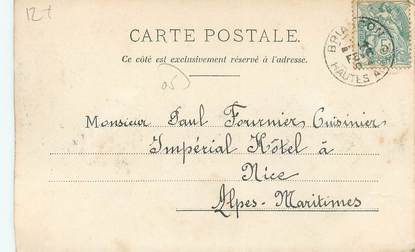 12+
CARTE POSTALE.
Ce côté est exclusivement réservé à l'adresse.
BRIANÇON
HAUTES A
05
Monsieur Paul Fournier Cuisinier
Impérial Hôtel à
Nice
Alpes-Maritimes